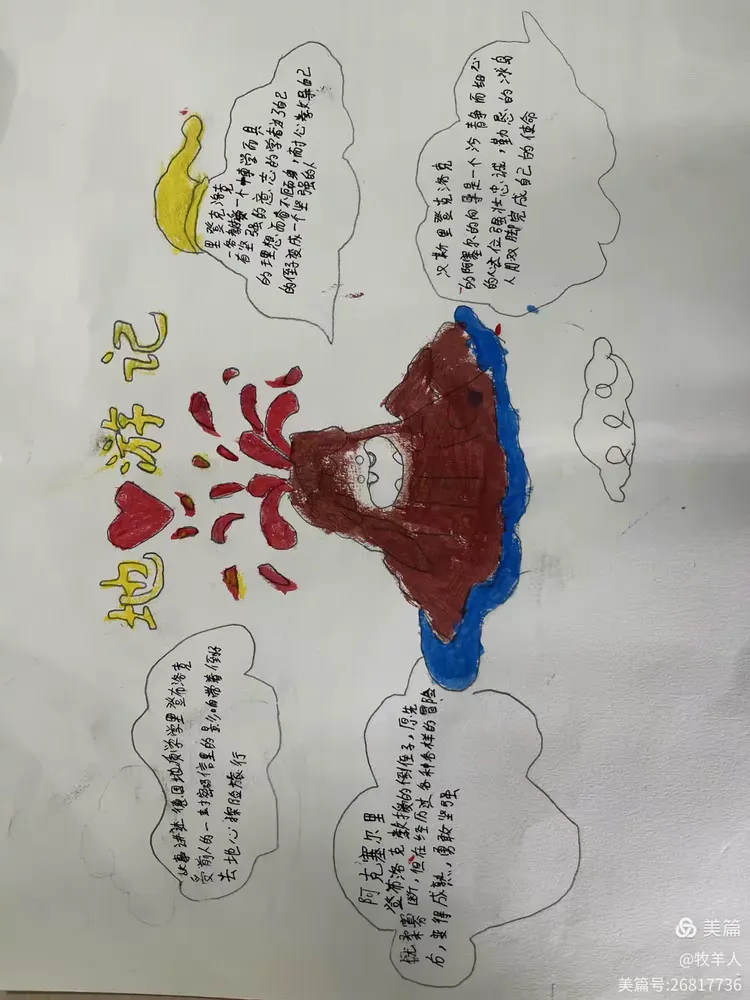 地 游记
故事讲述德国地质学学里登布洛克
受前人的一封密码信里的影响带着侄
去地心探险旅行
里登克洛克
一名教授一个博学而具
有坚强的意志的学者为了自己
的理想而奋不顾身，耐心教导自己
的侄子变成一个坚强的人
阿克塞尔里
登布洛克教授的侄子，原先
优柔寡断，但在经历过各种各样的冒险
后，变得成熟，勇敢坚强
汉斯里登克洛克
的阿塞尔的向导是一个冷静而细心
的人这位强壮忠诚，勤恳的冰岛
人用双脚完成自己的使命
美篇
@牧羊人
美篇号:26817736